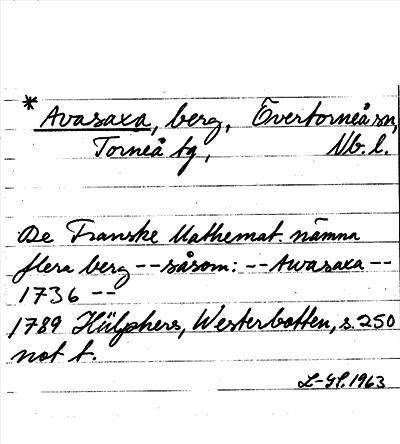 * Avasaxa, berg, Övertorneå sn,
Torneå tg, Nb. l.
De Franske Mathemat. nämna
flera berg -- såsom: -- Awasaxa --
1736 --
1789 Hülphers, Westerbotten, s. 250
not t.
L-Gl. 1963